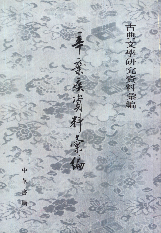 古典文學研究資料彙編
辛棄疾資料彙編
中华书局